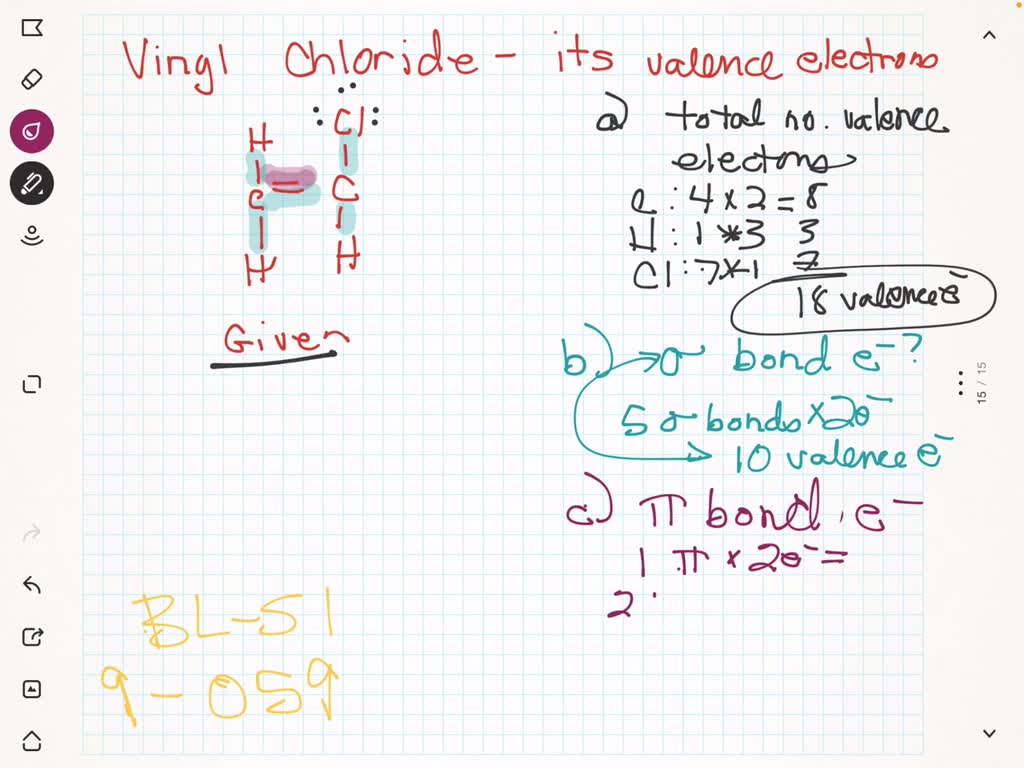 Vingl Chloride - its valence electrons
H Cl
C = C
H H
Given
a) total no. valence
electons
C : 4 x 2 = 8
H : 1 * 3 3
Cl : 7 x 1 7
18 valence e⁻
b) → σ bond e⁻ ?
5 σ bonds x 2e⁻
10 valence e⁻
c) π bond . e⁻
1 π x 2e⁻ =
2
BL-51
9-059
15 / 15